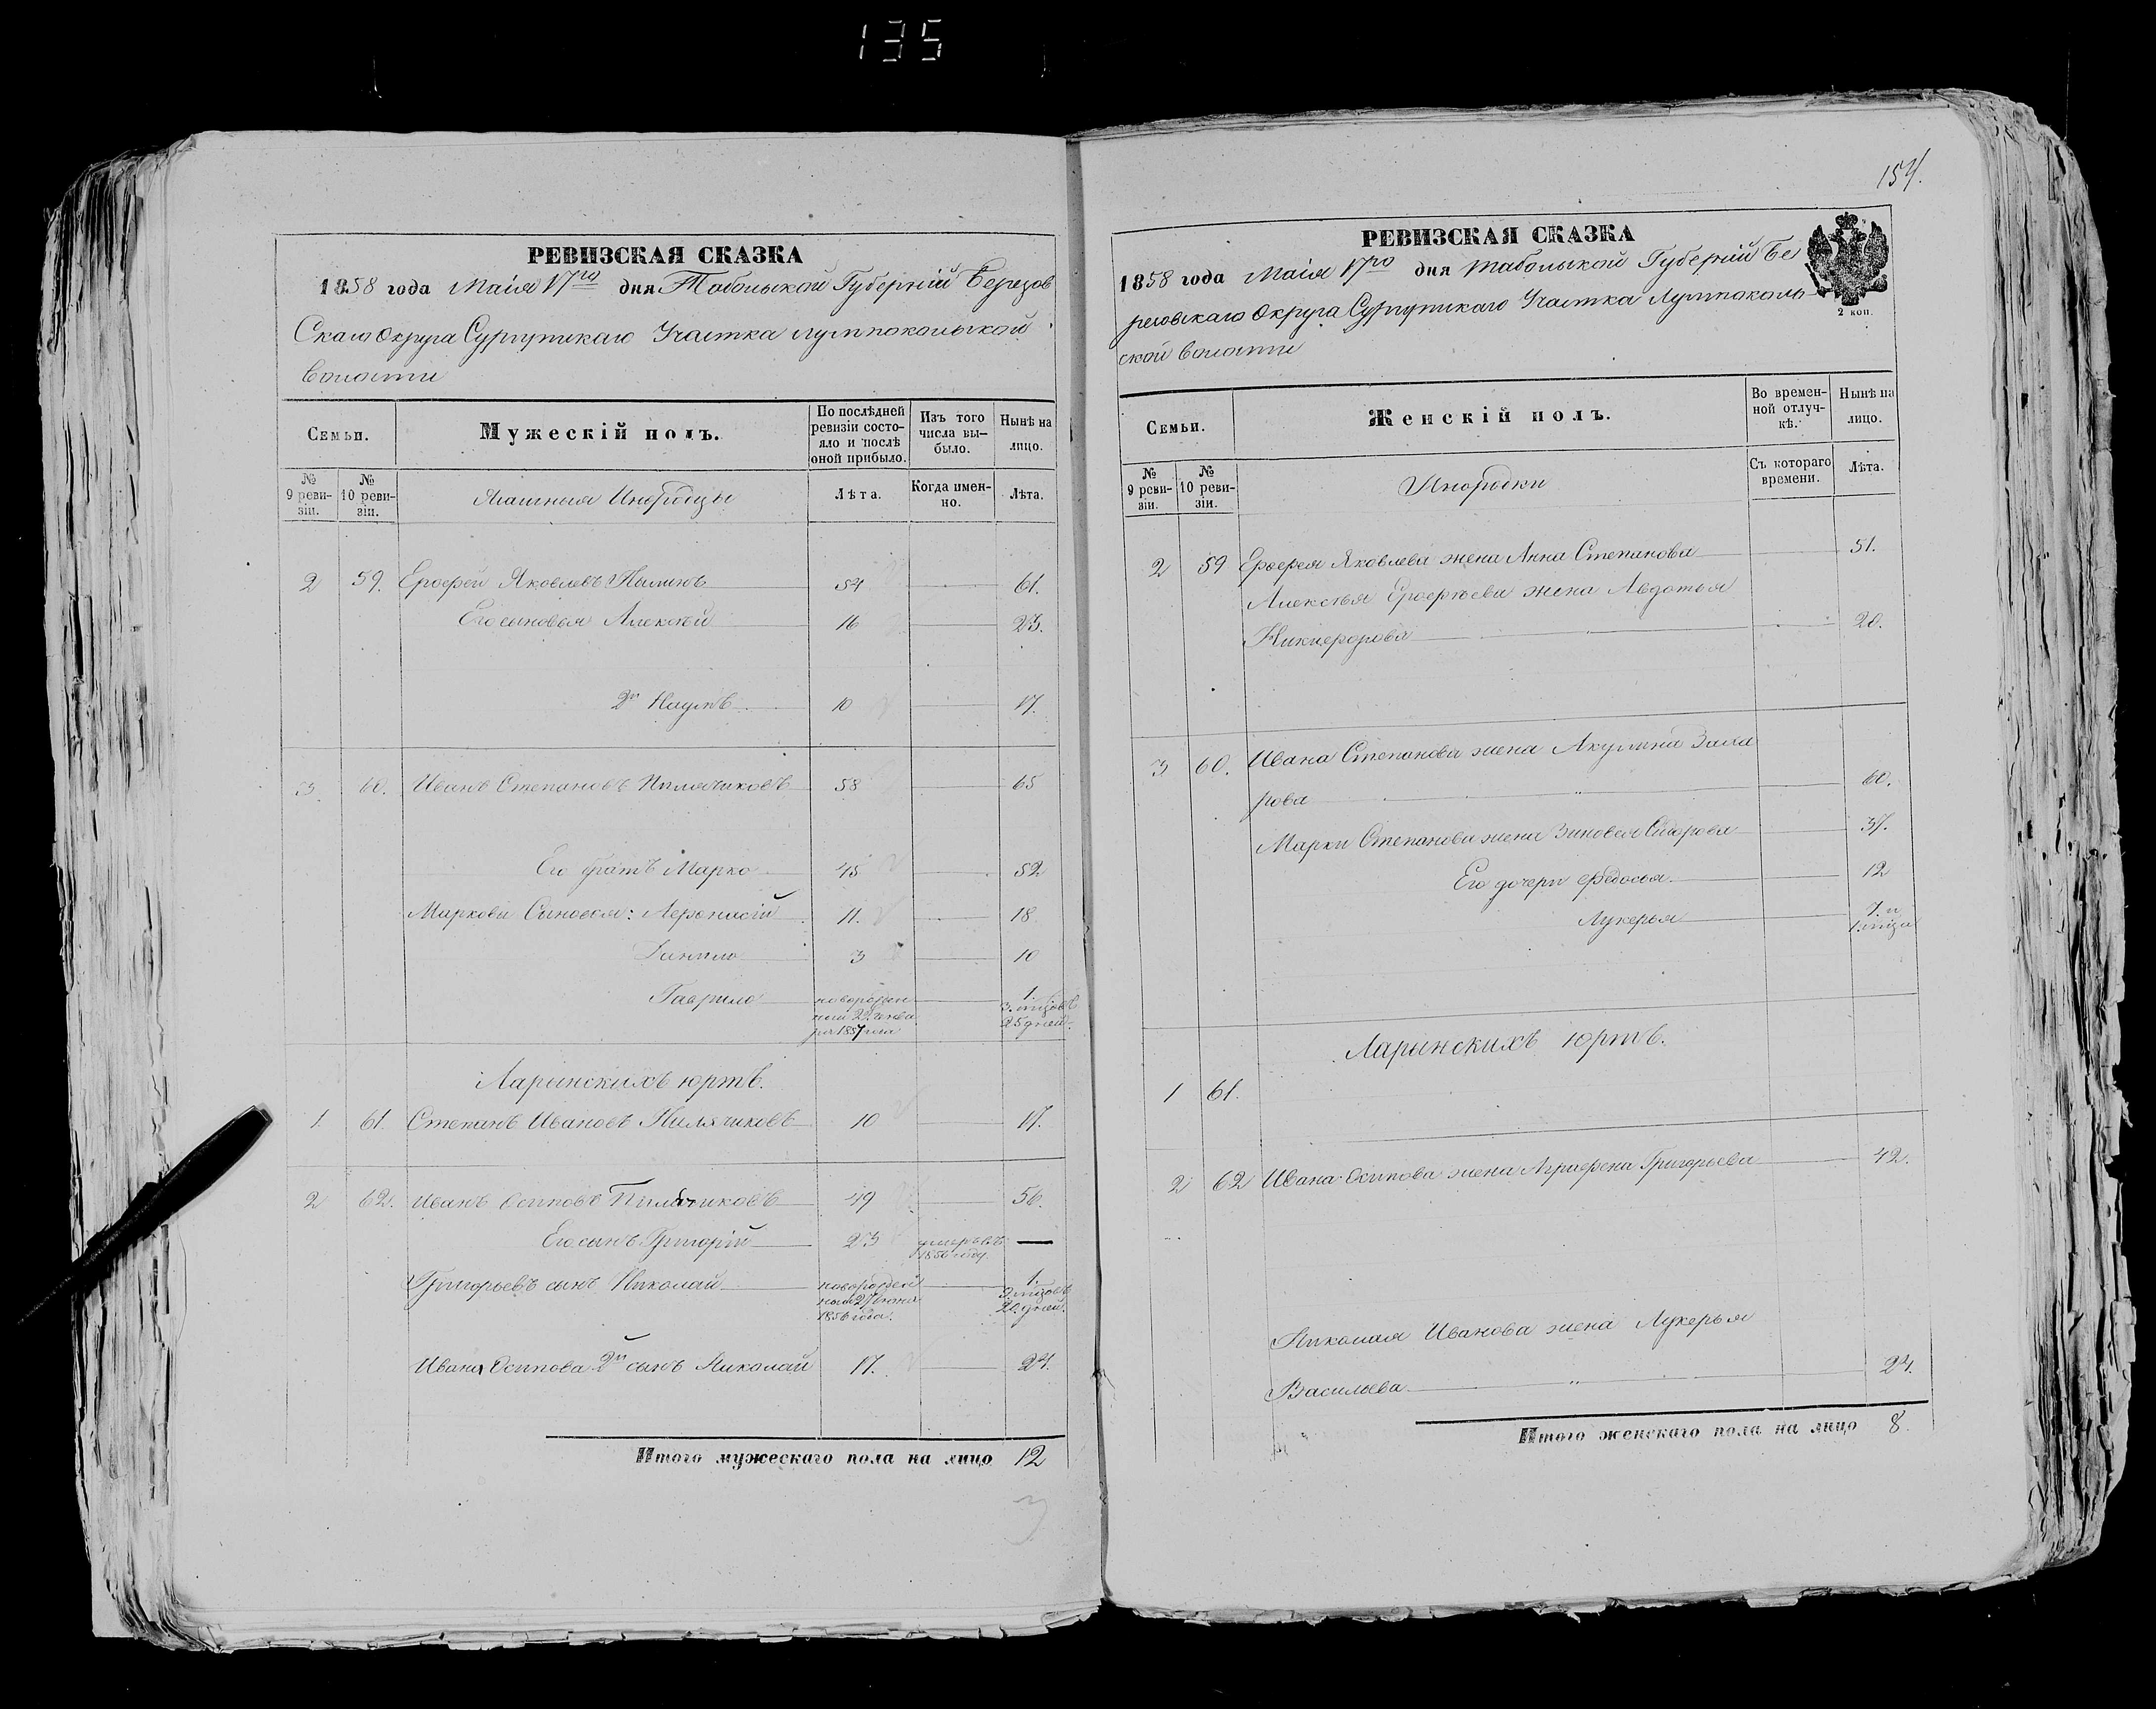 135
РЕВИЗСКАЯ СКАЗКА
1858 года Маія 17го дня Тобольской Губерніи Березов
Скаго Округа Сургутскаго Участка Лумпокольской
волости
Семьи.
Мужескій полъ.
По послѣдней ревизіи состояло и послѣ оной прибыло.
Изъ того числа вы-было.
Нынѣ на лицо.
№ 9 реви-зіи.
№ 10 реви-зіи.
Ясашныя Инородцы
Лѣта.
Когда имен-но.
Лѣта.
2 59. Ерофей Яковлевъ 54 61.
Его сыновья Алексѣй 16 23.
2й Наумъ 10 17.
3. 60. Иванъ Степановъ 58 65
Его братъ Марко 45 52
Марковы Сыновья: Афонасій 11. 18
Данило 3 10
Гаврило новорожден 1.
ный 22 Генва 3. мѣзовъ
ря 1857 года 25 дней.
Ларынскихъ юртъ.
1. 61. Степанъ Ивановъ Пилячиковъ 10 17.
2 62. Иванъ Осиповъ 49 56.
Его сынъ Григорій 23 умеръ въ 1856 году. —
Григорьевъ сынъ Николай новорожден 1.
ный 27 Іюня
1856 года. 20. дней.
Ивана Осипова 2й сынъ Николай 17. 24.
Итого мужескаго пола на лицо 12
3
154.
РЕВИЗСКАЯ СКАЗКА
1858 года Маія 17го дня Тобольской Губерніи Бе
резовскаго Округа Сургутскаго Участка Лумпоколь-
ской волости
2 коп.
Семьи.
Женскій полъ.
Во времен-ной отлуч-кѣ.
Нынѣ на лицо.
№ 9 реви-зіи.
№ 10 реви-зіи.
Инородки
Съ котораго времени.
Лѣта.
2 59 Ерофея Яковлева жена Анна Степанова 51.
Алексѣя Ерофѣева жена Авдотья
Никифорова 20.
3 60. Ивана Степанова жена Акулина Заха
рова " 60.
Марки Степанова жена Зиновея Сидорова 37.
Его дочери Федосья 12
Лукерья 7. и
1. мѣзца
Ларынскихъ юртъ.
1 61.
2 62 Ивана Осипова жена Аграфена Григорьева 42.
Николая Иванова жена Лукерья
Васильева " 24.
Итого женскаго пола на лицо 8.